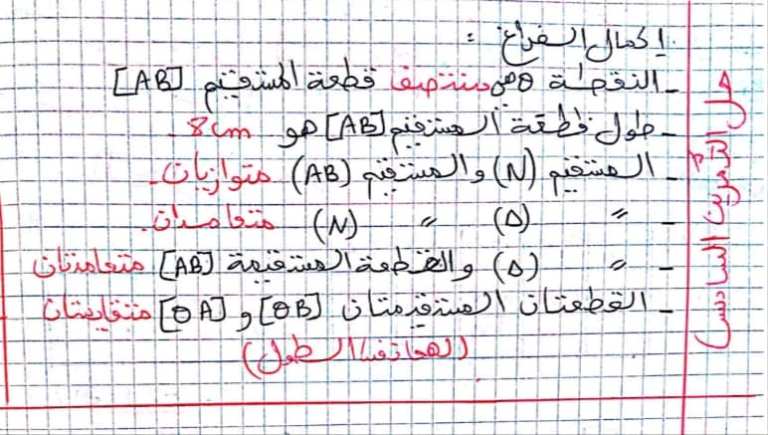 إكمال الفراغ :
- النقطة O هي منتصف قطعة المستقيم [AB]
- طول قطعة المستقيم [AB] هو 8cm.
- المستقيم (N) والمستقيم (AB) متوازيان.
- " (D) " (N) متعامدان.
- " (D) والقطعة المستقيمة [AB] متعامدتان
- القطعتان المستقيمتان [OB] و [OA] متقايستان
(لهما نفس الطول)
حل التمرين السادس